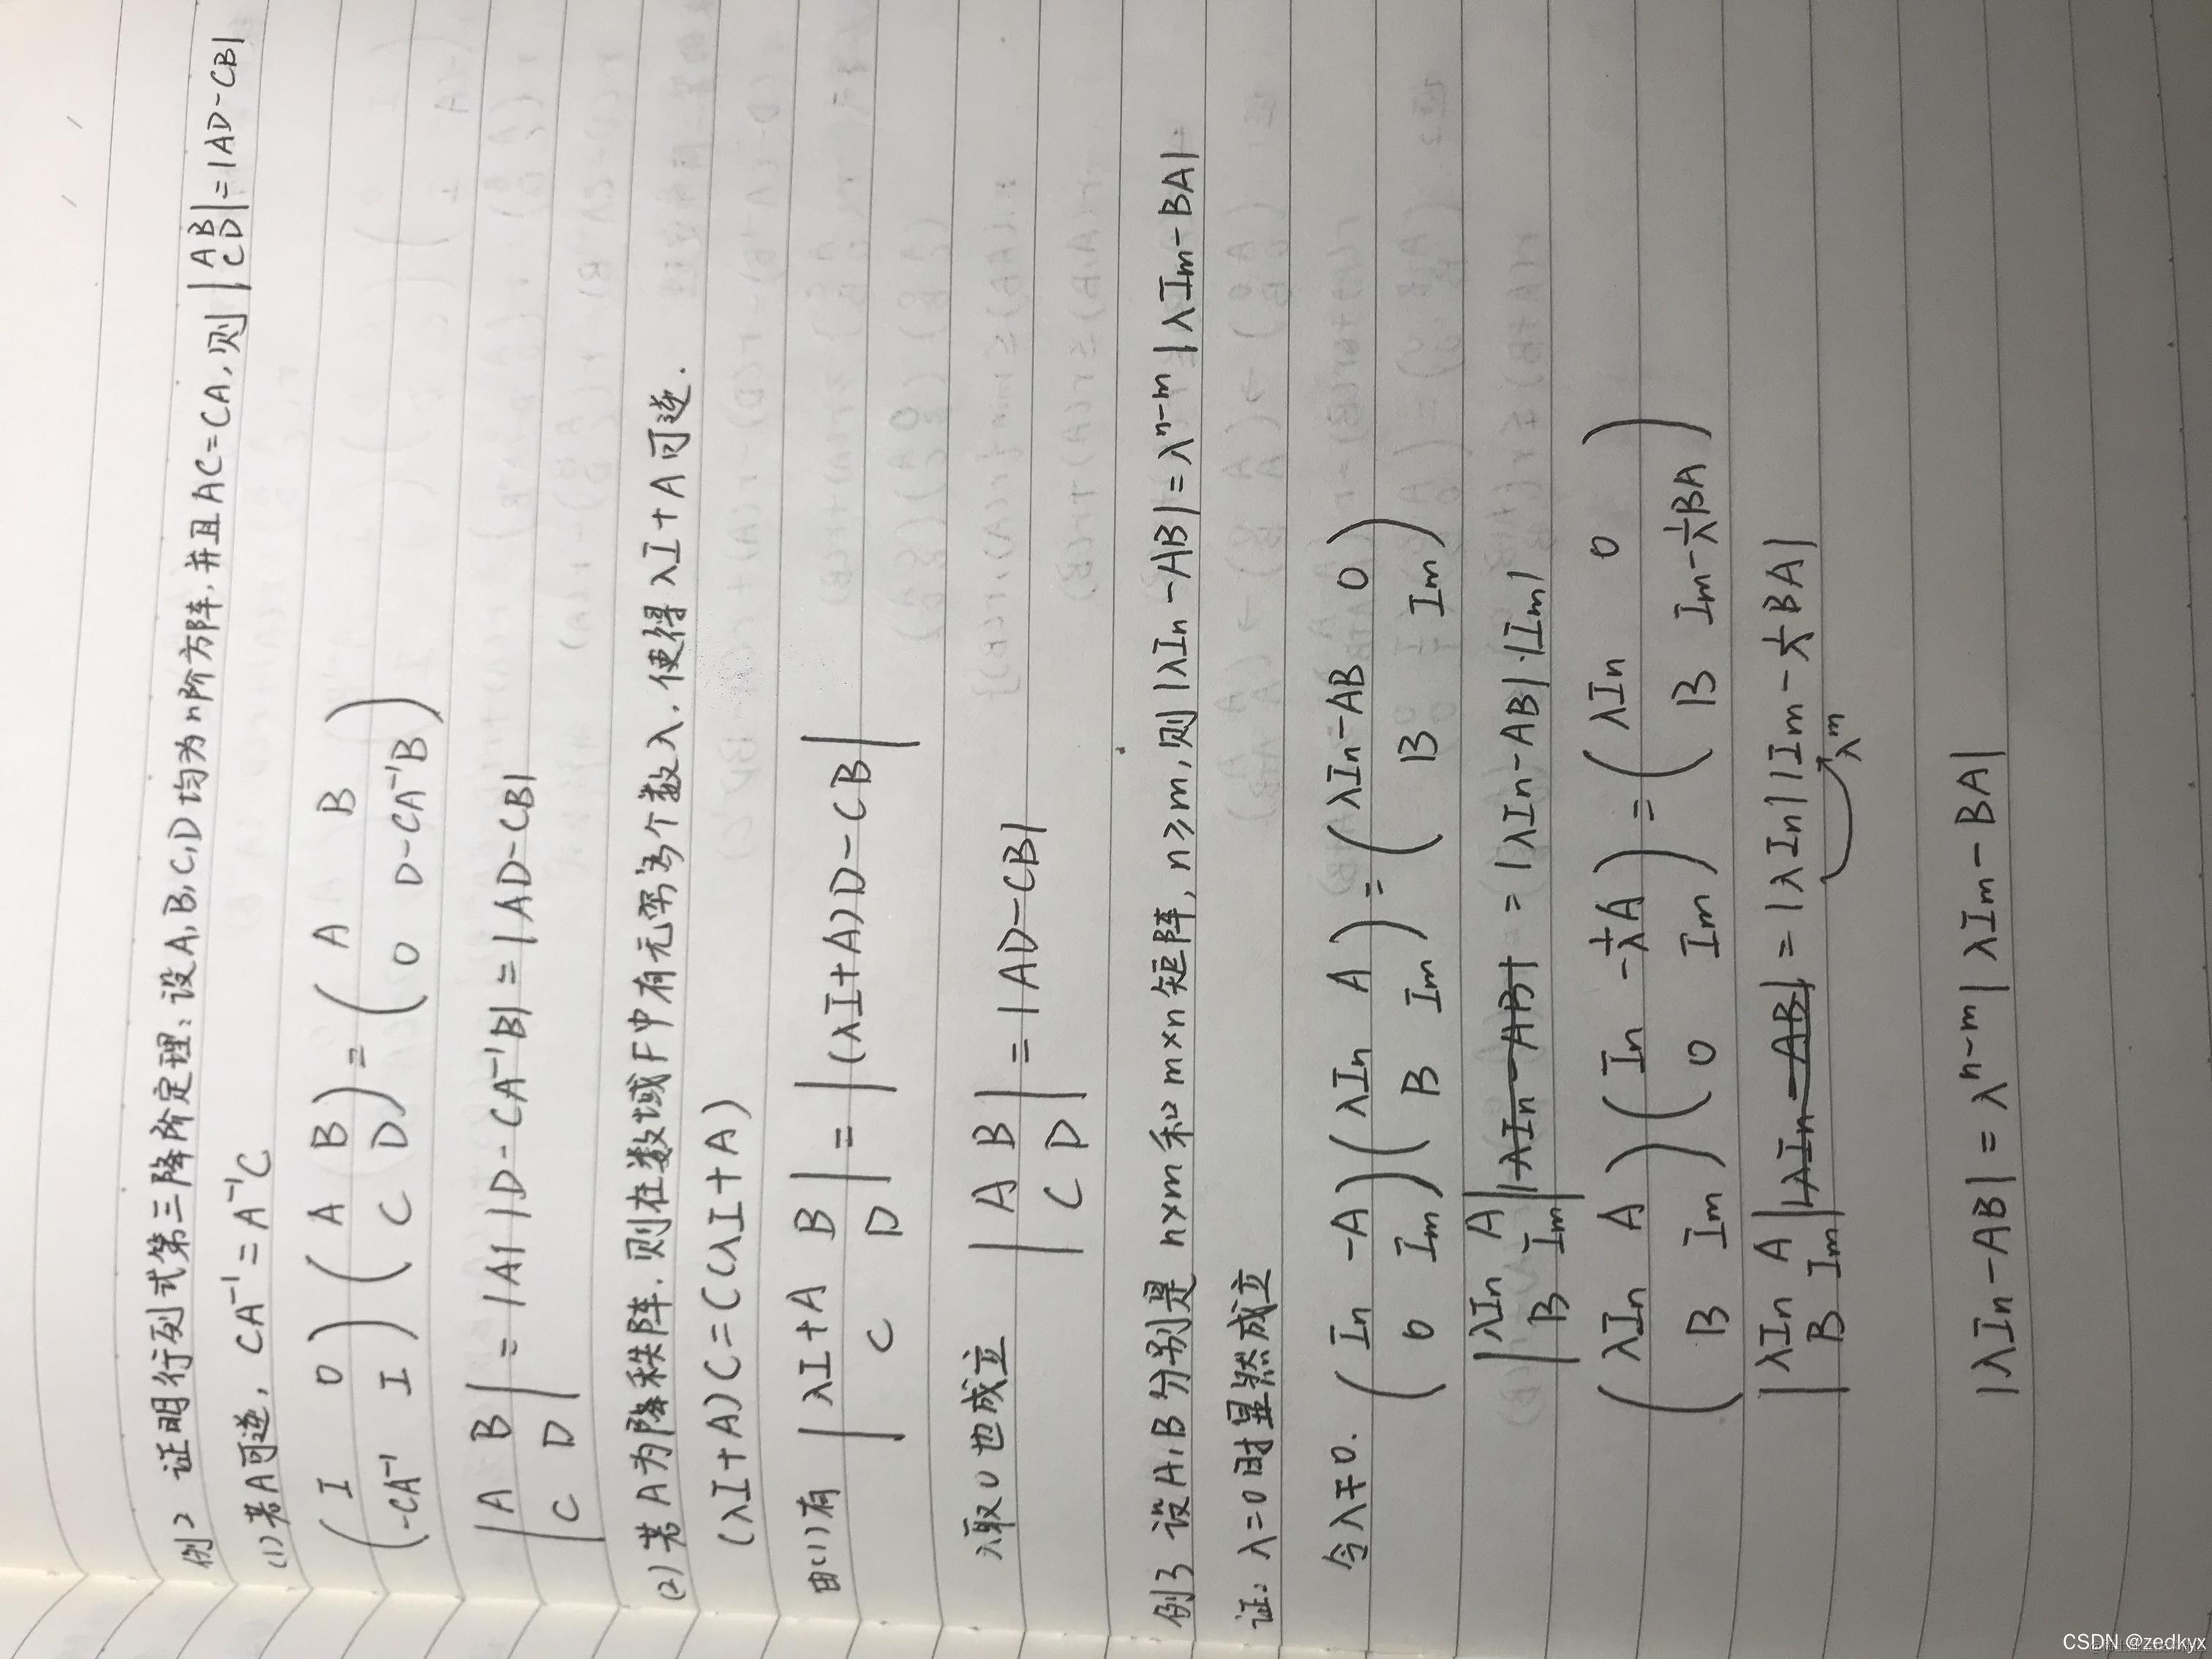 例2 证明行列式第三降阶定理:设A,B,C,D均为n阶方阵,并且AC=CA,则 |A B; C D|=|AD-CB|
(1)若A可逆, CA⁻¹=A⁻¹C
(I 0; -CA⁻¹ I)(A B; C D)=(A B; 0 D-CA⁻¹B)
|A B; C D|=|A||D-CA⁻¹B|=|AD-CB|
(2)若A为降秩阵,则在数域F中有无穷多个数λ,使得λI+A可逆.
(λI+A)C=C(λI+A)
由(1)有 |λI+A B; C D|=|(λI+A)D-CB|
λ取0也成立 |A B; C D|=|AD-CB|
例3 设A,B分别是n×m和m×n矩阵,n≥m,则|λIn-AB|=λⁿ⁻ᵐ|λIm-BA|
证:λ=0时显然成立
令λ≠0. (In -A; 0 Im)(λIn A; B Im)=(λIn-AB 0; B Im)
|λIn A; B Im| |λIn-AB| =|λIn-AB|·|Im|
(λIn A; B Im)(In -1/λA; 0 Im)=(λIn 0; B Im-1/λBA)
|λIn A; B Im| |λIn-AB| =|λIn||Im-1/λBA|
λᵐ
|λIn-AB|=λⁿ⁻ᵐ|λIm-BA|
CSDN @zedkyx